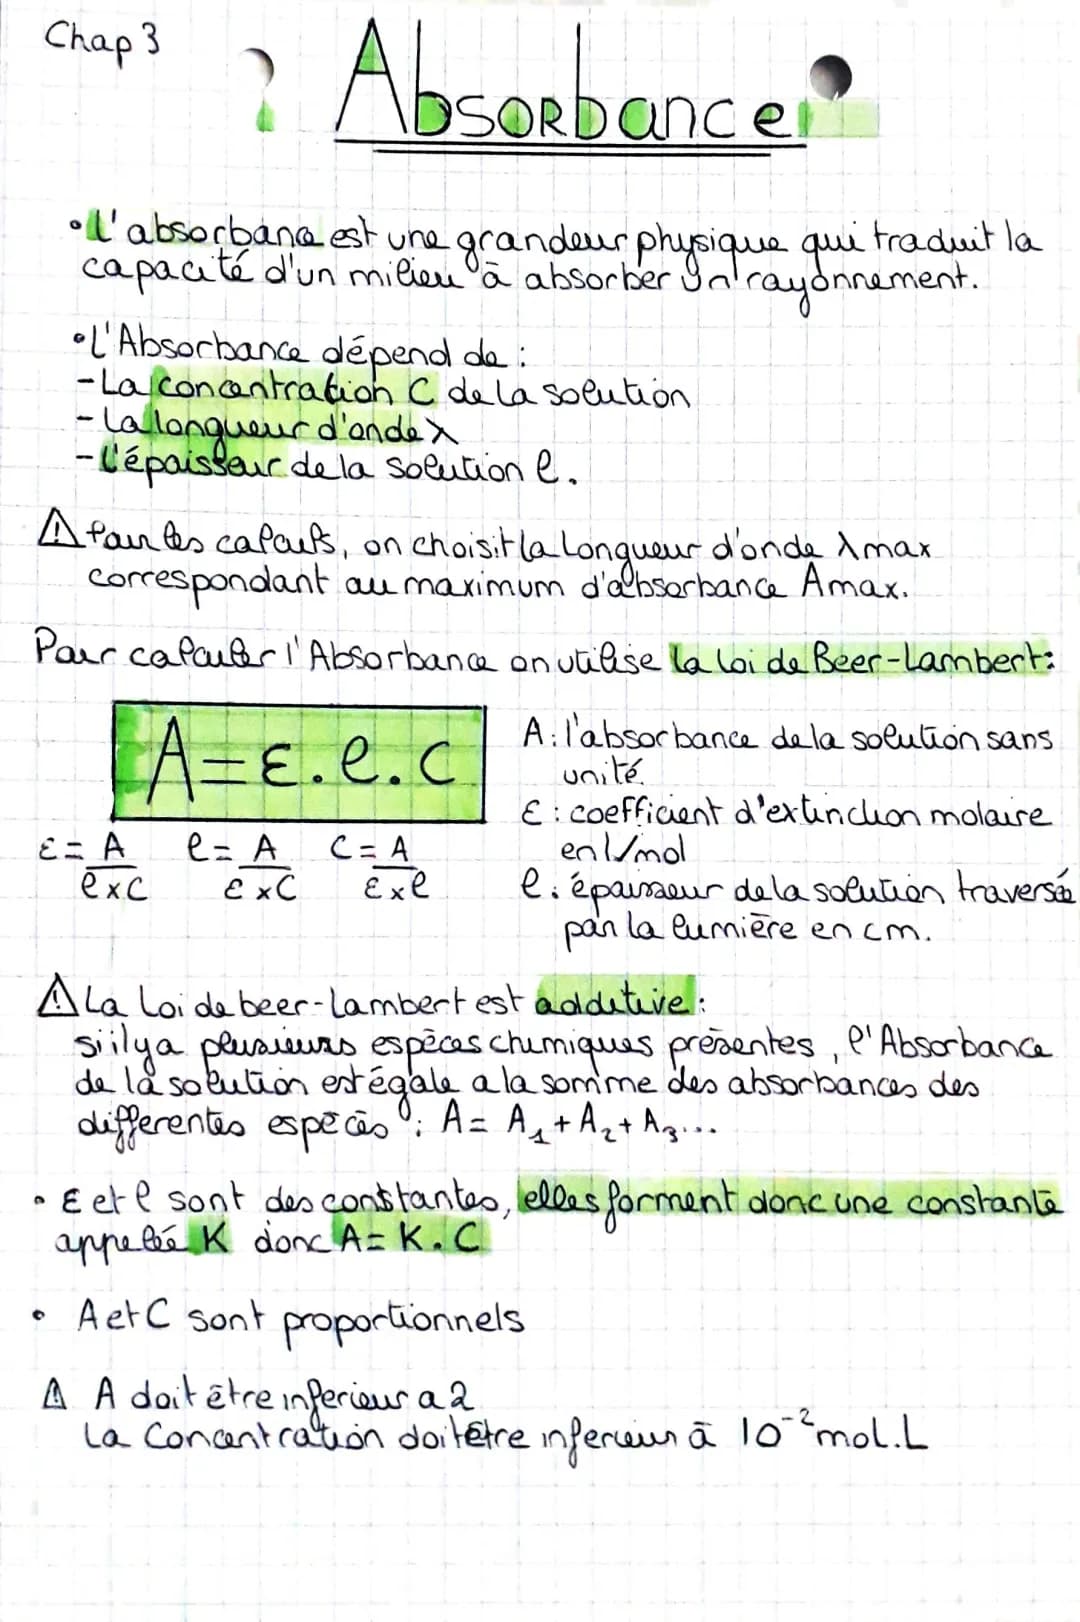 Chap 3
Absorbance
• l'absorbance est une grandeur physique qui traduit la
capacité d'un milieu à absorber un rayonnement.
• L'Absorbance dépend de :
- La concentration C de la solution
- la longueur d'onde λ
- L'épaisseur de la solution l.
⚠ Pour les calculs, on choisit la longueur d'onde λmax
correspondant au maximum d'absorbance Amax.
Pour calculer l'Absorbance on utilise la loi de Beer-Lambert:
A=ε.l.c
A: l'absorbance de la solution sans
unité.
ε : coefficient d'extinction molaire
en l/mol
l: épaisseur de la solution traversée
par la lumière en cm.
ε = A/l×C l = A/ε×C C = A/ε×l
⚠ La loi de beer-Lambert est additive :
si il y a plusieurs espèces chimiques présentes, l'Absorbance
de la solution est égale a la somme des absorbances des
differentes espèces : A= A₁ + A₂ + A₃...
• ε et l sont des constantes, elles forment donc une constante
appelée K donc A= K.C
• A et C sont proportionnels
⚠ A doit être inferieur a 2
La Concentration doit être inferieur à 10⁻² mol.L